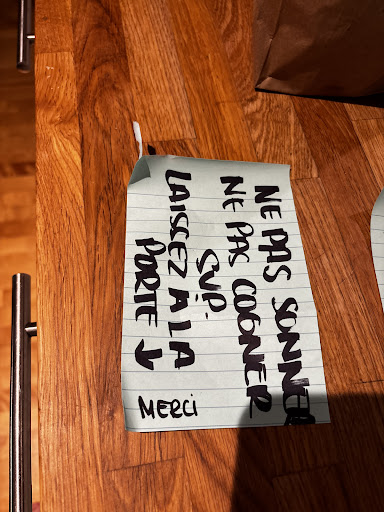 NE PAS SONNER
NE PAS COGNER
SVP.
LAISSEZ À LA
PORTE ↓
MERCi